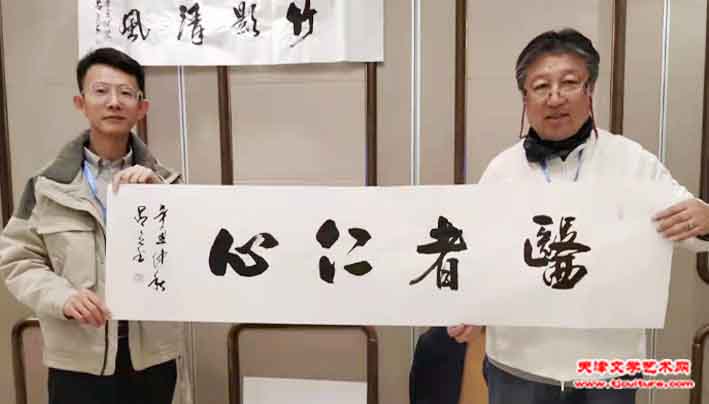 竹影清风
醫者仁心
辛丑仲秋
天津文学艺术网
www.tjculture.com